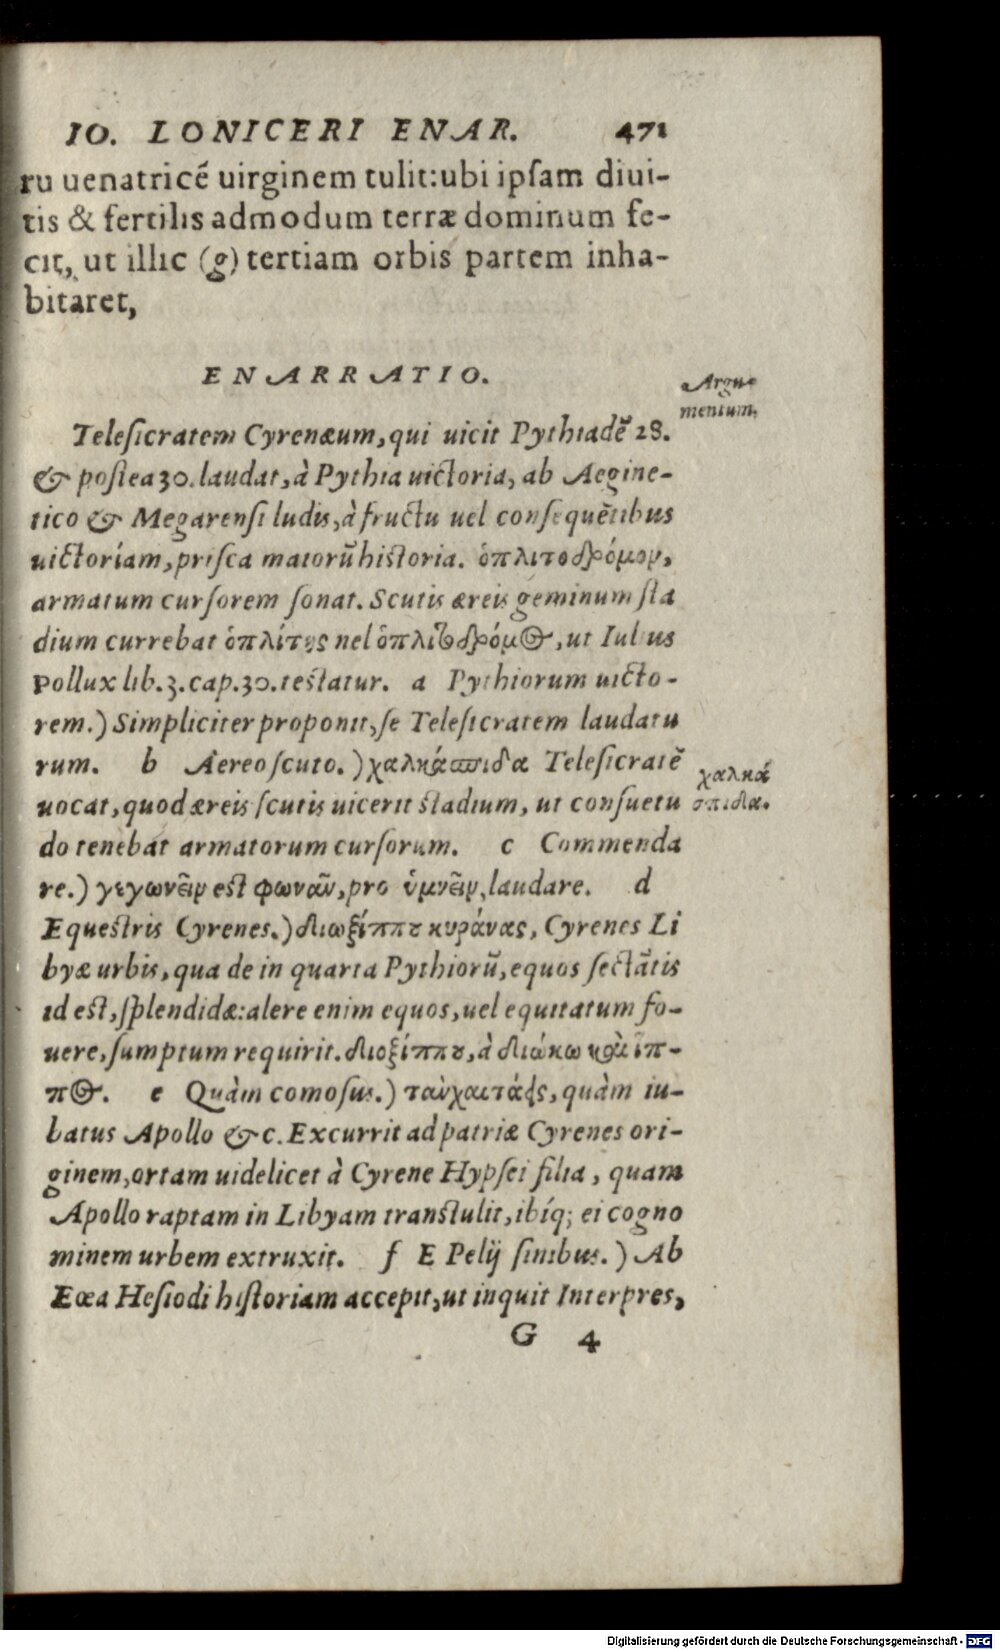 IO. LONICERI ENAR. 471
ru uenatricẽ uirginem tulit:ubi ipſam diui-
tis & fertilis admodum terræ dominum fe-
cit, ut illic (g) tertiam orbis partem inha-
bitaret,
ENARRATIO.
Argu-
mentum.
Teleſicratem Cyrenæum, qui uicit Pythiadẽ 28.
& poſtea 30. laudat, à Pythia uictoria, ab Aegine-
tico & Megarenſi ludis, à fructu uel conſequẽtibus
uictoríam, priſca maiorũ historia. ὁπλιτοδρόμον,
armatum curſorem ſonat. Scutis æreis geminum ſta
dium currebat ὁπλίτης uel ὁπλιτοδρόμος, ut Iulius
Pollux lib.3. cap.30. testatur. a Pythiorum uicto-
rem.) Simpliciter proponit, ſe Teleſicratem laudatu
rum. b Aereo ſcuto.) χαλκάσπιδα Teleſicratẽ
uocat, quod æreis ſcutis uicerit stadium, ut conſuetu
do tenebat armatorum curſorum. c Commenda
re.) γεγωνεῖν est φωνᾶν, pro ὑμνεῖν, laudare. d
χαλκά
σπιδα.
Equestris Cyrenes.) διωξίππου κυράνας, Cyrenes Li
byæ urbis, qua de in quarta Pythiorũ, equos ſectãtis
id est, ſplendidæ: alere enim equos, uel equitatum fo-
uere, ſumptum requirit. διοξίππου, à διώκω καὶ ἵπ-
πος. e Quàm comoſus.) τὰν χαιτάεις, quàm iu-
batus Apollo &c. Excurrit ad patriæ Cyrenes ori-
ginem, ortam uidelicet à Cyrene Hypſei filia, quam
Apollo raptam in Libyam transtulit, ibíq; ei cogno
minem urbem extruxit. f E Pelij ſinibus.) Ab
Eœa Heſiodi hiſtoriam accepit, ut inquit Interpres,
G 4
Digitalisierung gefördert durch die Deutsche Forschungsgemeinschaft - DFG